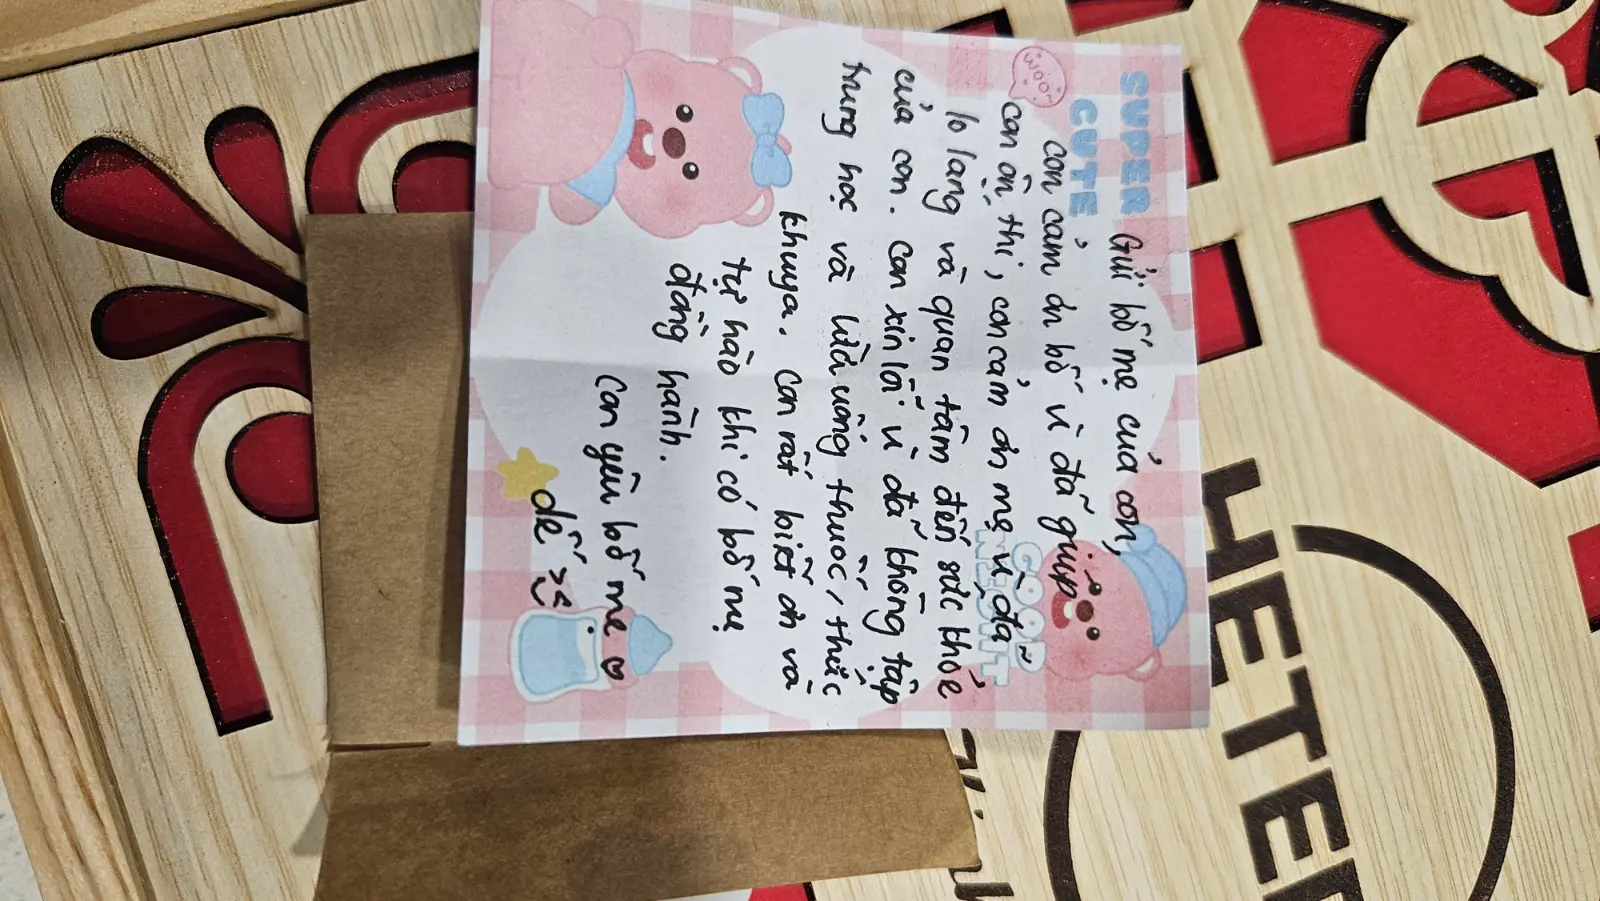 SUPER
CUTE
woo!
GOOD
NIGHT
Gửi bố mẹ của con,
con cảm ơn bố vì đã giúp
con ôn thi, con cảm ơn mẹ vì đã
lo lắng và quan tâm đến sức khỏe
của con. Con xin lỗi vì đã không tập
trung học và lười uống thuốc, thức
khuya. Con rất biết ơn và
tự hào khi có bố mẹ
đồng hành.
Con yêu bố mẹ
dế
HETER